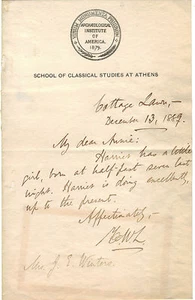 ARCHAEOLOGICAL
INSTITUTE
OF
AMERICA.
1879.
SCHOOL OF CLASSICAL STUDIES AT ATHENS
Cottage Lawn,
December 13, 1889.
My dear Annie:
Harries has a little
girl, born at half-past seven last
night. Harries is doing excellently
up to the present.
Affectionately,
Mrs J. S.